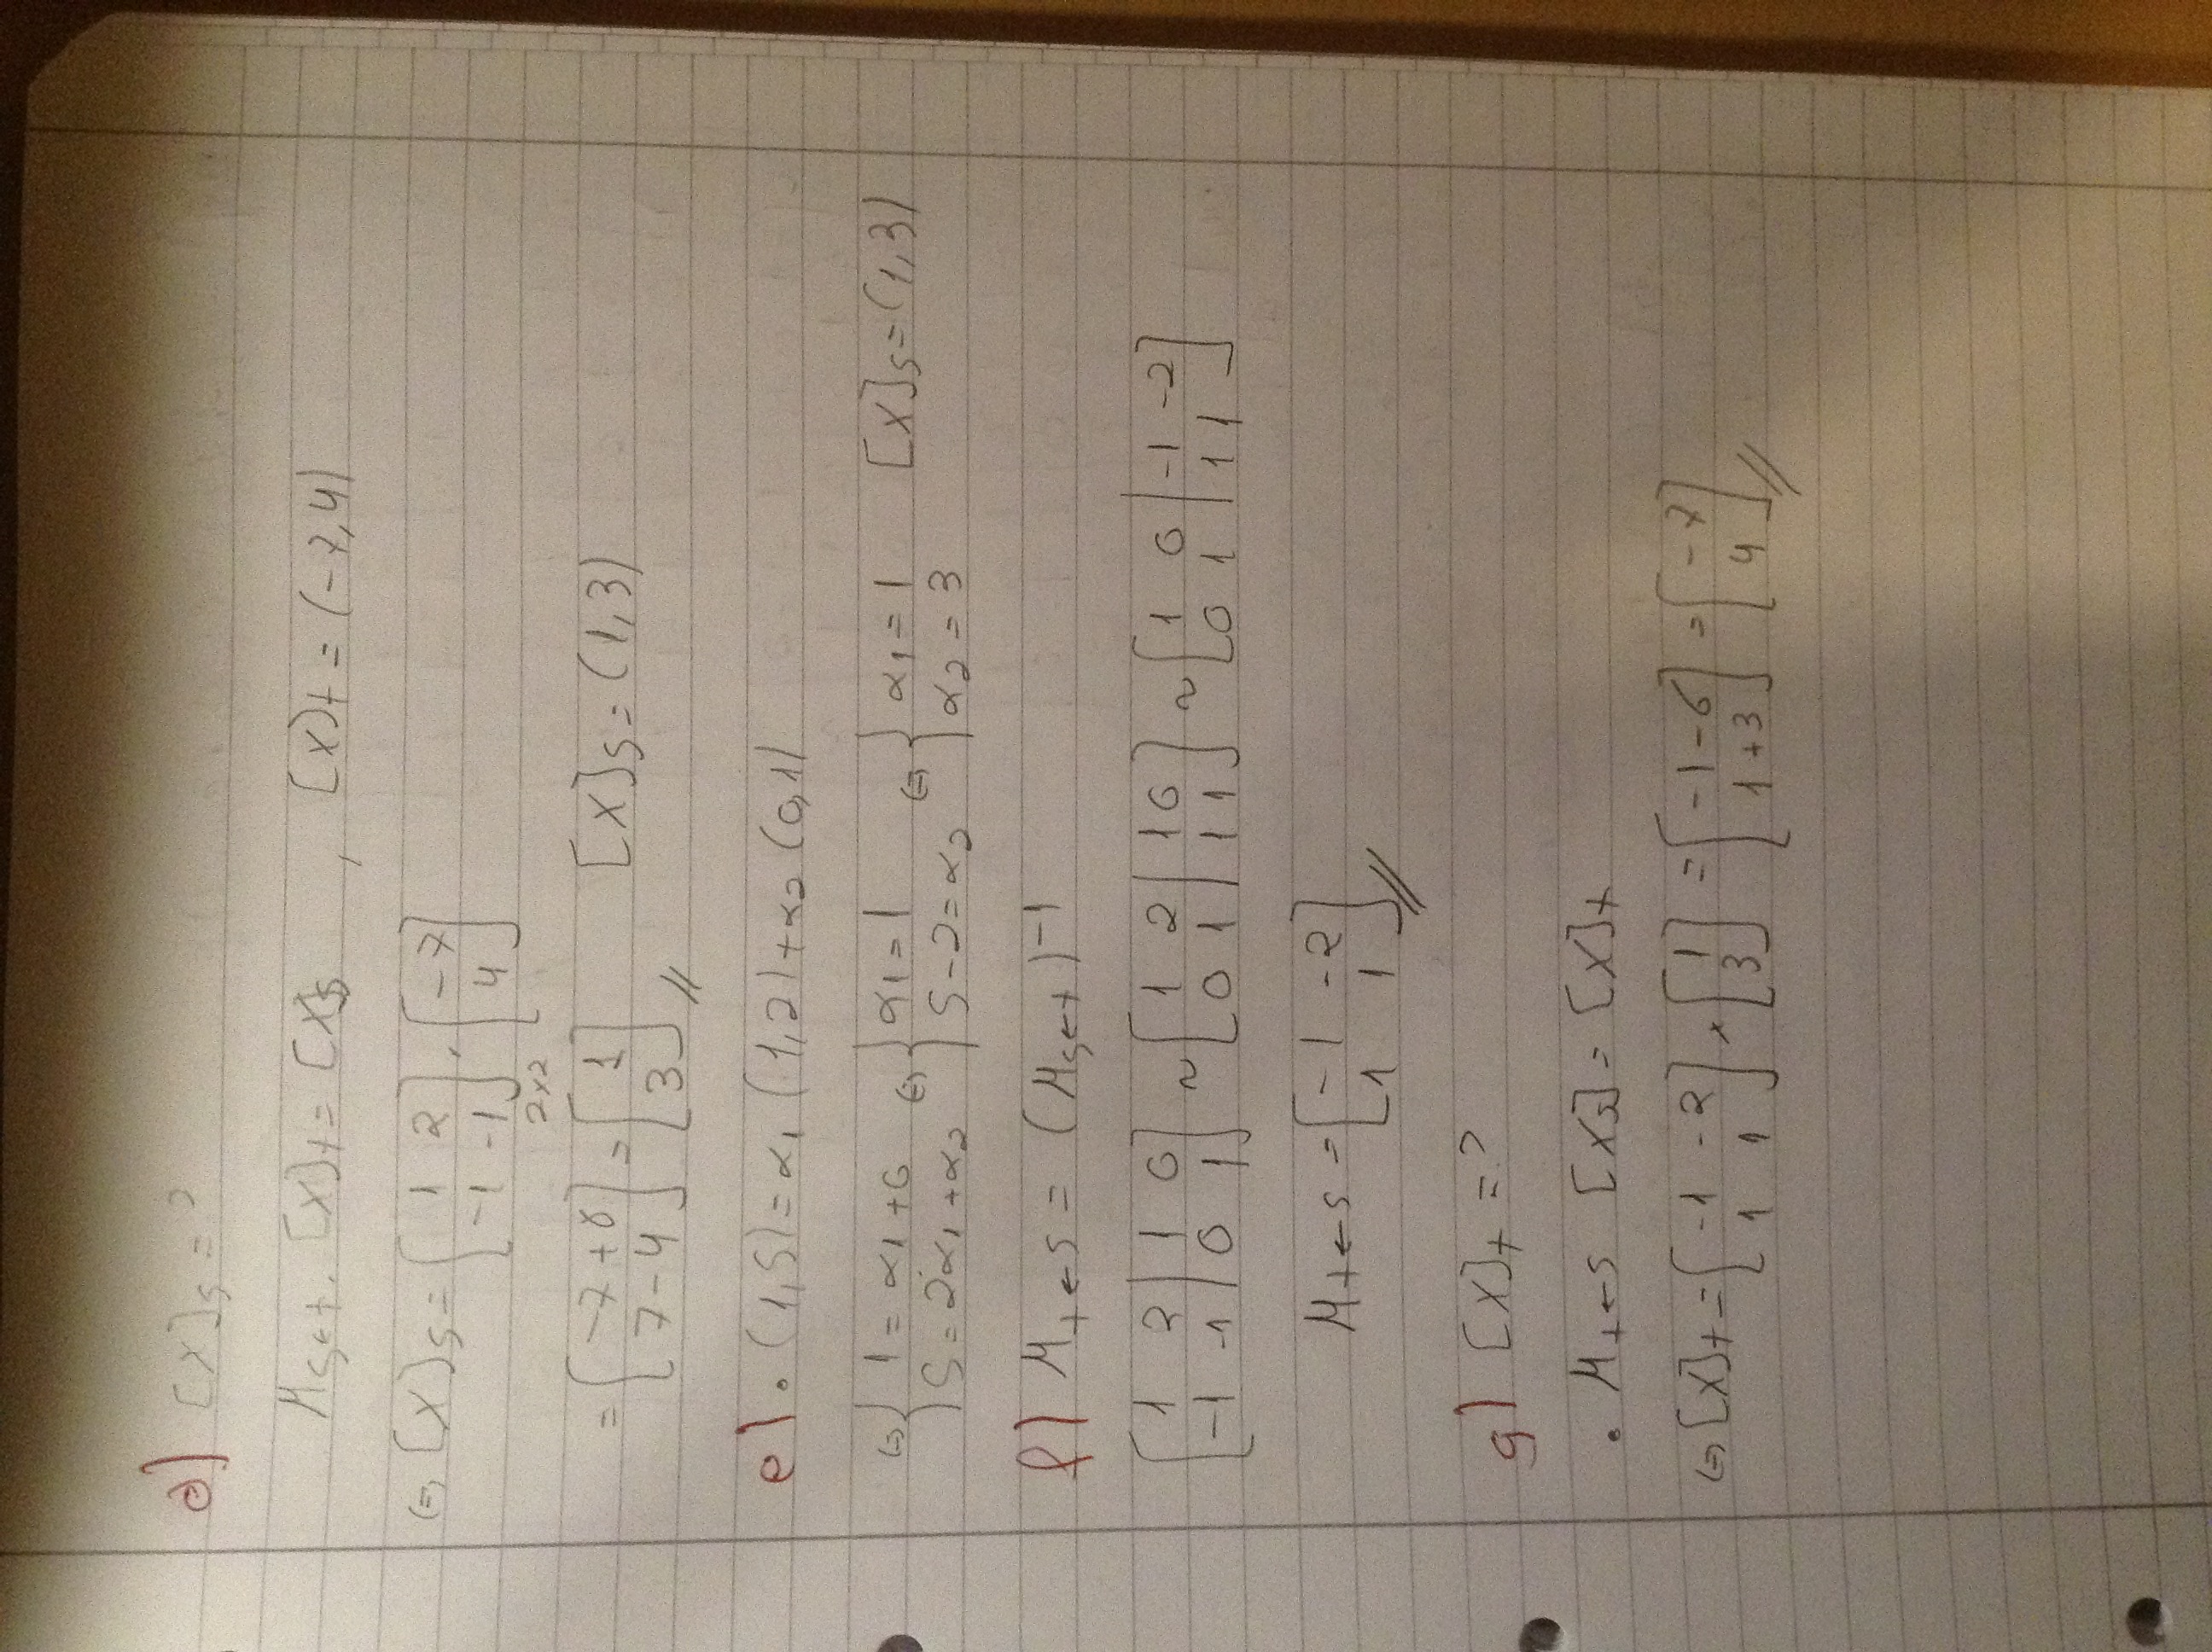 d) [X]s = ?
Ms←t . [X]t = [X]s , [X]t = (-7,4)
⇔ [X]s = [1 2; -1 -1]2x2 . [-7; 4]
= [-7+8; 7-4] = [1; 3] // [X]s = (1,3)
e) • (1,5) = α1 (1,2) + α2 (0,1)
⇔ { 1 = α1 + 0; 5 = 2α1 + α2 ⇔ { α1 = 1; 5-2 = α2 ⇔ { α1 = 1; α2 = 3 [X]s = (1,3)
f) Mt←s = (Ms←t)^-1
[1 2 | 1 0; -1 -1 | 0 1] ~ [1 2 | 1 0; 0 1 | 1 1] ~ [1 0 | -1 -2; 0 1 | 1 1]
Mt←s = [-1 -2; 1 1] //
g) [X]t = ?
• Mt←s [Xs] = [X]t
⇔ [X]t = [-1 -2; 1 1] x [1; 3] = [-1-6; 1+3] = [-7; 4] //